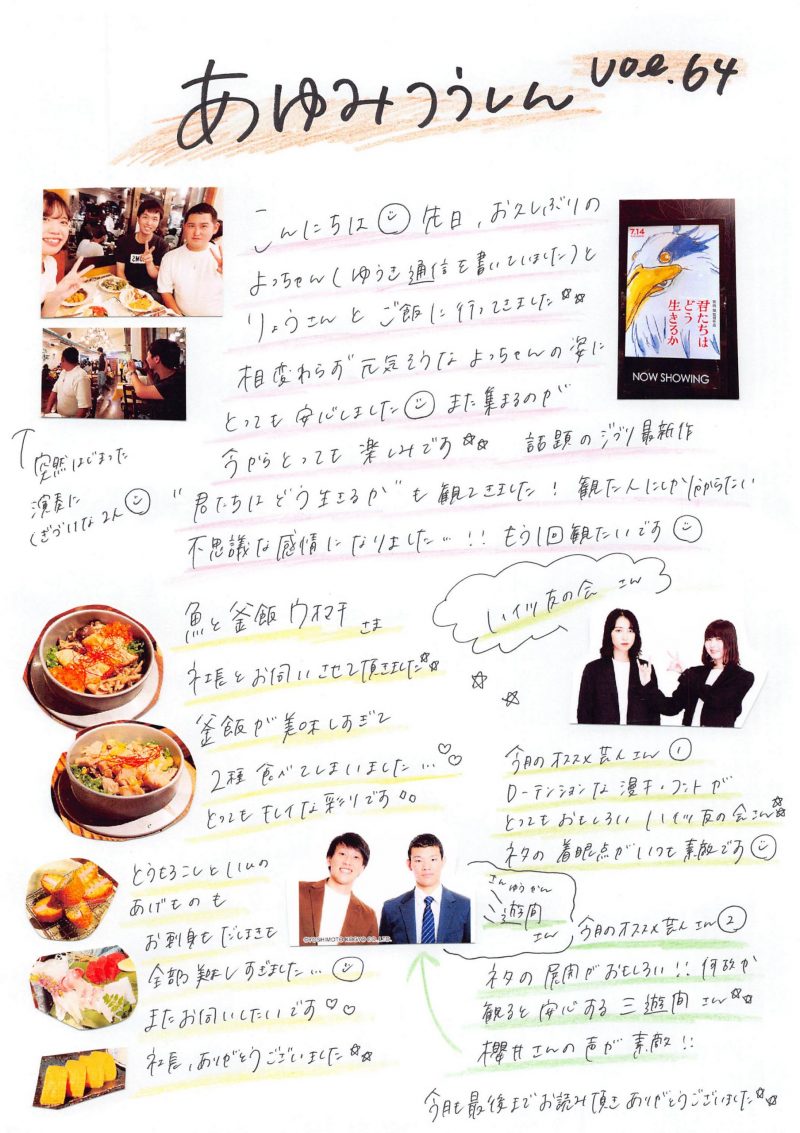 あゆみつうしん vol.64
こんにちは 先日、お久しぶりの
よっちゃん(ゆうき通信を書いていました)と
りょうさんと ご飯に行ってきました☆☆
相変わらず元気そうなよっちゃんの姿に
とっても安心しました また集まるのが
今からとっても楽しみです☆☆ 話題のジブリ最新作
"君たちはどう生きるか"も観てきました! 観た人にしか分からない
不思議な感情になりました…!! もう1回観たいです
7.14
君たちは
どう
生きるか
NOW SHOWING
↑突然はじまった
演奏に
くぎづけな2人
魚と釜飯 ウオマチ さま
社長とお伺いさせて頂きました☆☆
釜飯が美味しすぎて
2種食べてしまいました…♡♡
とってもキレイな彩りです
とうもろこしといもの
あげものも
お刺身もだしまきも
全部美味しすぎました…
またお伺いしたいです♡♡
社長、ありがとうございました☆☆
いイツ友の会 さん
今月のオススメ芸人さん①
ローテンションな漫才・コントが
とってもおもしろい いイツ友の会さん☆☆
ネタの着眼点がいつも素敵です
©YOSHIMOTO KOGYO CO.,LTD.
さんゆうかん
三遊間
さん
今月のオススメ芸人さん②
ネタの展開がおもしろい!! 何故か
観ると安心する三遊間さん☆☆
櫻井さんの声が素敵!!
今月も最後までお読み頂きありがとうございました☆☆